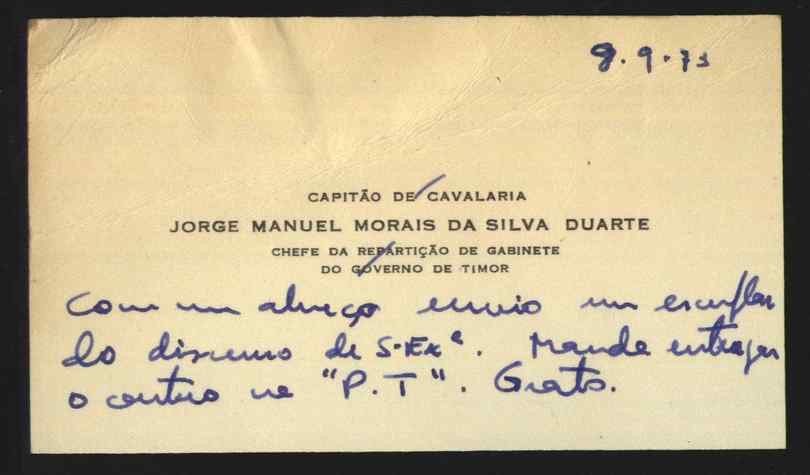 8.9.73
CAPITÃO DE CAVALARIA
JORGE MANUEL MORAIS DA SILVA DUARTE
CHEFE DA REPARTIÇÃO DE GABINETE
DO GOVERNO DE TIMOR
Com um abraço envio um exemplar
do discurso de S.Exª. Mande entregar
o outro na "P.T". Grato.